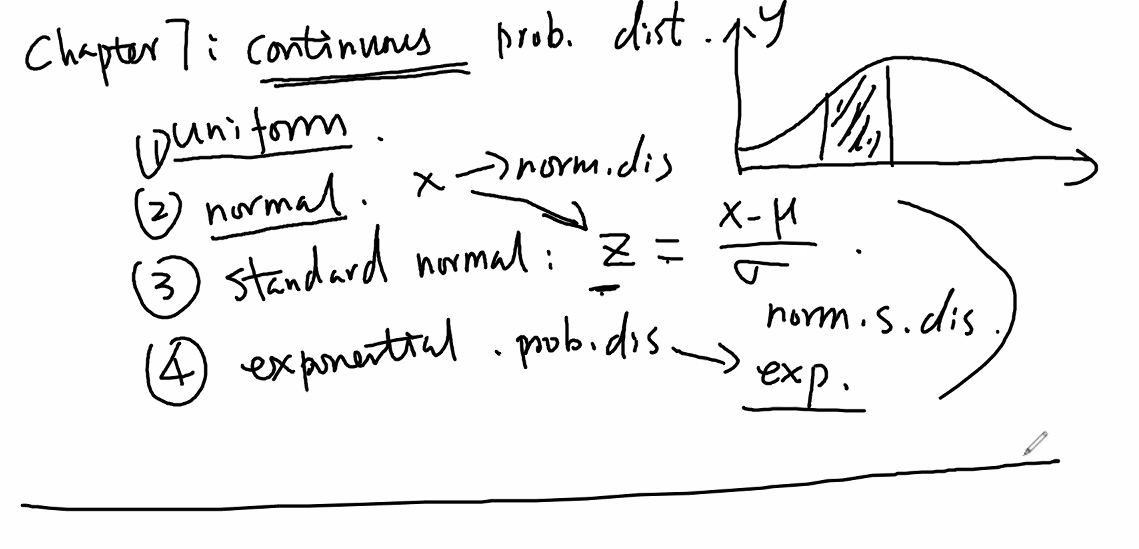 Chapter 7: continuous prob. dist.
y
① uniform.
② normal. x → norm.dis
③ standard normal: z = (x - μ) / σ.
norm.s.dis.
④ exponential. prob.dis → exp.